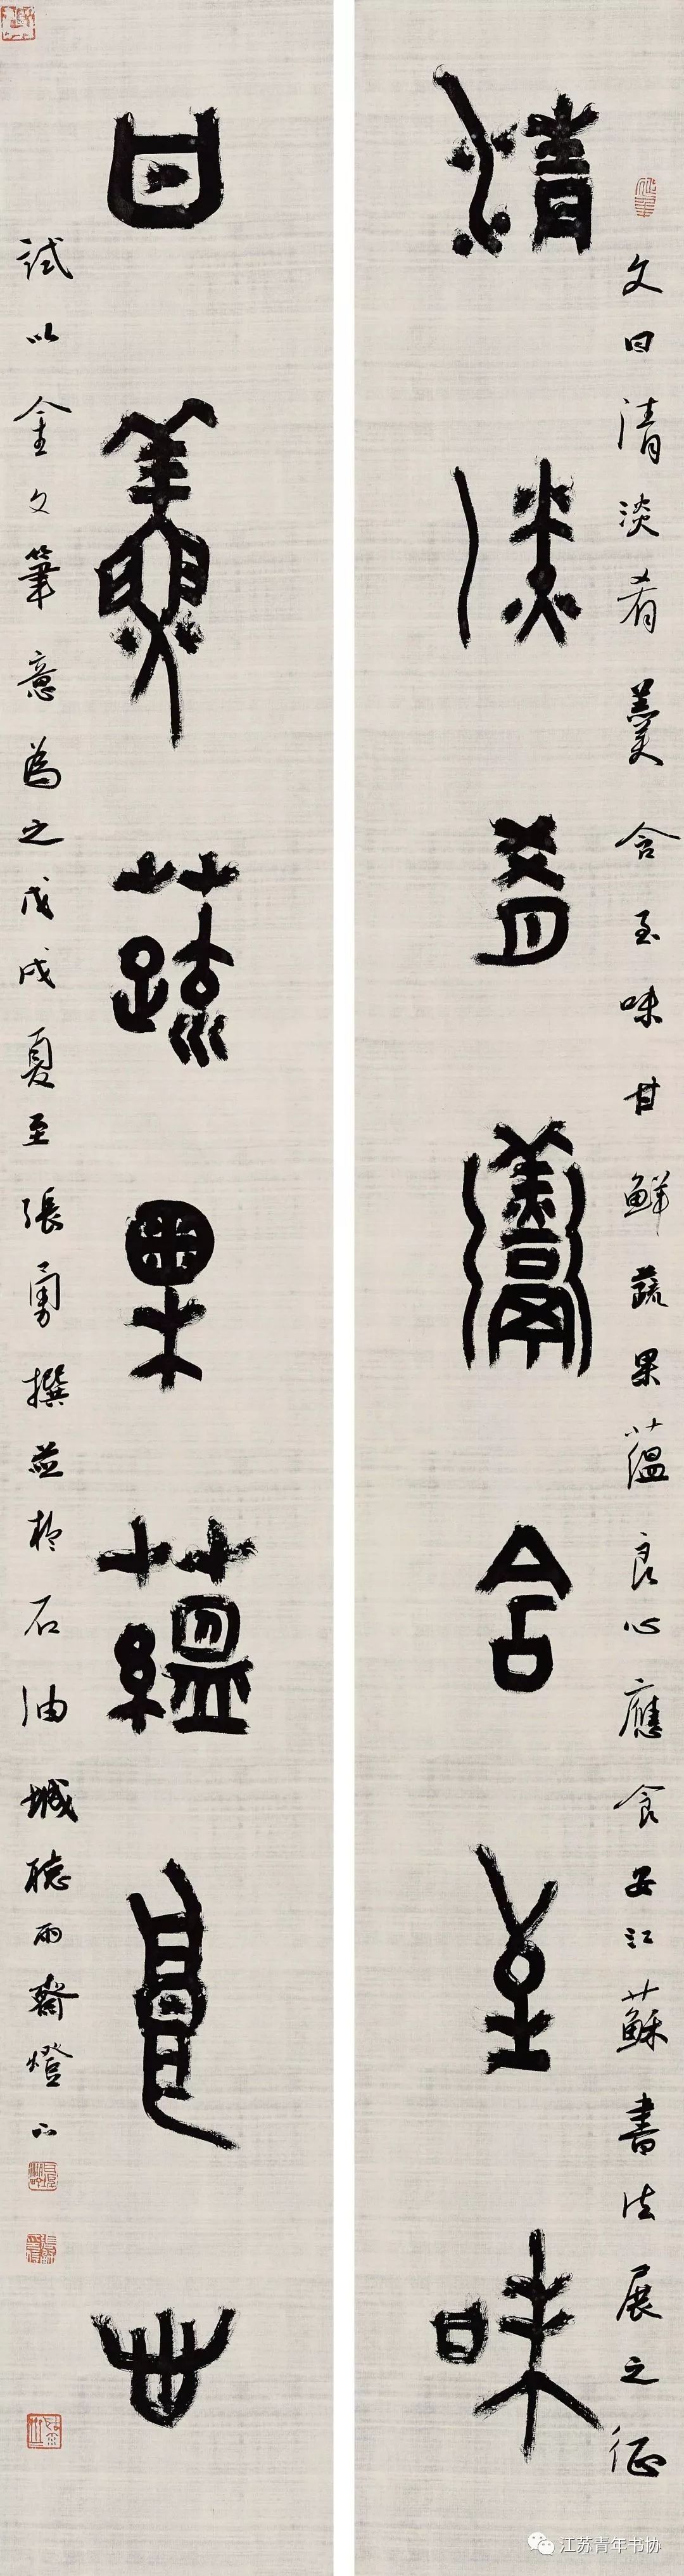 文曰清淡肴羹含至味甘鮮蔬果蘊良心應食安江蘇書法展之征
清淡肴羹含至味
甘鮮蔬果蘊良心
試以金文筆意為之戊戌夏至張勇撰並於石油城聽雨齋燈下
江苏青年书协